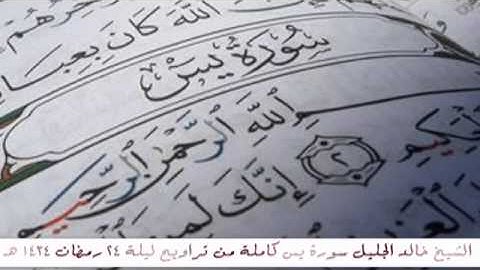 ٱللَّهَ كَانَ بِعِبَا
سُورَةُ يسٓ
ٱللَّهِ ٱلرَّحْمَٰنِ ٱلرَّحِيمِ
٢ إِنَّكَ لَمِنَ
الشيخ خالد الجليل سورة يس كاملة من تراويح ليلة ٢٤ رمضان ١٤٣٤ هـ